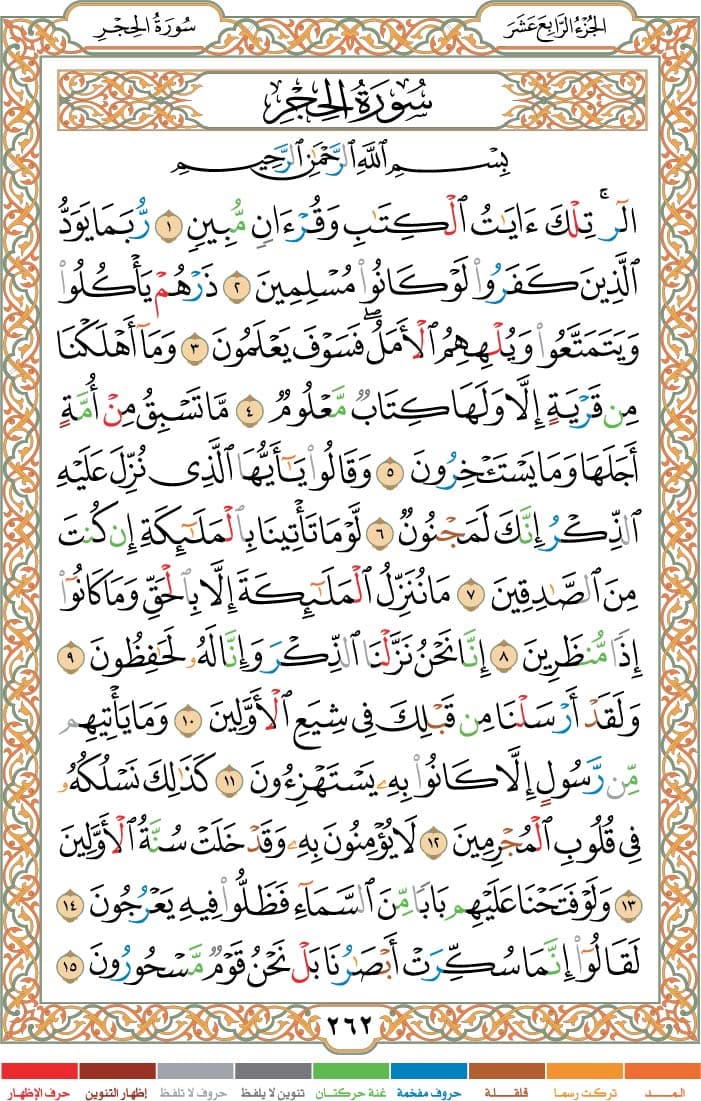 الجُزْءُ الرَّابِعَ عَشَرَ
سُورَةُ الحِجْرِ
سُورَةُ الحِجْرِ
بِسْمِ اللَّهِ الرَّحْمَٰنِ الرَّحِيمِ
الٓرۚ تِلْكَ ءَايَٰتُ ٱلْكِتَٰبِ وَقُرْءَانٍ مُّبِينٍ ١ رُّبَمَا يَوَدُّ
ٱلَّذِينَ كَفَرُوا۟ لَوْ كَانُوا۟ مُسْلِمِينَ ٢ ذَرْهُمْ يَأْكُلُوا۟
وَيَتَمَتَّعُوا۟ وَيُلْهِهِمُ ٱلْأَمَلُۖ فَسَوْفَ يَعْلَمُونَ ٣ وَمَآ أَهْلَكْنَا
مِن قَرْيَةٍ إِلَّا وَلَهَا كِتَابٌ مَّعْلُومٌ ٤ مَّا تَسْبِقُ مِنْ أُمَّةٍ
أَجَلَهَا وَمَا يَسْتَـْٔخِرُونَ ٥ وَقَالُوا۟ يَٰٓأَيُّهَا ٱلَّذِى نُزِّلَ عَلَيْهِ
ٱلذِّكْرُ إِنَّكَ لَمَجْنُونٌ ٦ لَّوْ مَا تَأْتِينَا بِٱلْمَلَٰٓئِكَةِ إِن كُنتَ
مِنَ ٱلصَّٰدِقِينَ ٧ مَا نُنَزِّلُ ٱلْمَلَٰٓئِكَةَ إِلَّا بِٱلْحَقِّ وَمَا كَانُوٓا۟
إِذًا مُّنظَرِينَ ٨ إِنَّا نَحْنُ نَزَّلْنَا ٱلذِّكْرَ وَإِنَّا لَهُۥ لَحَٰفِظُونَ ٩
وَلَقَدْ أَرْسَلْنَا مِن قَبْلِكَ فِى شِيَعِ ٱلْأَوَّلِينَ ١٠ وَمَا يَأْتِيهِم
مِّن رَّسُولٍ إِلَّا كَانُوا۟ بِهِۦ يَسْتَهْزِءُونَ ١١ كَذَٰلِكَ نَسْلُكُهُۥ
فِى قُلُوبِ ٱلْمُجْرِمِينَ ١٢ لَا يُؤْمِنُونَ بِهِۦ وَقَدْ خَلَتْ سُنَّةُ ٱلْأَوَّلِينَ
١٣ وَلَوْ فَتَحْنَا عَلَيْهِم بَابًا مِّنَ ٱلسَّمَآءِ فَظَلُّوا۟ فِيهِ يَعْرُجُونَ ١٤
لَقَالُوٓا۟ إِنَّمَا سُكِّرَتْ أَبْصَٰرُنَا بَلْ نَحْنُ قَوْمٌ مَّسْحُورُونَ ١٥
٢٦٢
المـــد تركت رسما قلقـلة حروف مفخمة غنة حركتان تنوين لا يلفظ حروف لا تلفظ إظهار التنوين حرف الإظهار